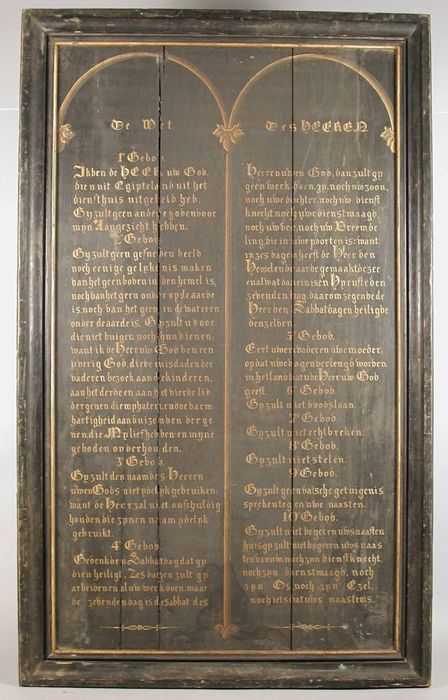 De Wet
Des HEEREN.
1e Gebod.
Ik ben de HEER uw God,
die u uit Egipteland uit het
diensthuis uitgeleid heb.
Gy zult geen andere goden voor
myn Aangezicht hebben.
2e Gebod.
Gy zult geen gesneden beeld
noch eenige gelykenis maken
van het geen boven in den hemel is,
noch van het geen onder op de aarde
is, noch van het geen in de wateren
onder de aarde is. Gy zult u voor
die niet buigen noch hun dienen:
want ik de Heer uw God ben een
yverig God, die de misdaden der
vaderen bezoek aan de kinderen,
aan het derde en aan het vierde lid
dergenen die my haten: en doe barm
hartigheid aan duizenden der ge
nen die My liefhebben en myne
geboden onderhouden.
3e Gebod.
Gy zult den naam des Heeren
uwen Gods niet ydelyk gebruiken.
want de Heer zal niet onschuldig
houden die zynen naam ydelyk
gebruikt.
4e Gebod.
Gedenk den Sabbatdag dat gy
dien heiligt. Zes dagen zult gy
arbeiden en al uw werk doen. maar
de zevenden dag is de Sabbat des
Heeren uwen God, dan zult gy
geen werk doen, gy, noch uw zoon,
noch uwe dochter, noch uw dienst
knecht, noch uwe dienstmaagd,
noch uw vee, noch uw Vreemde
ling, die in uwe poorten is: want
in zes dagen heeft de Heer den
Hemel en de aarde gemaakt, de zee
en al wat daar in is en Hy ruste den
zevenden dag; daarom zegende de
Heer den Sabbatdag en heiligde
denzelven.
5e Gebod.
Eert uwen vader en uwe moeder,
opdat uwe dagen verlengd worden
in het land dat u de Heer uw God
geeft. 6e Gebod.
Gy zult niet doodslaan.
7e Gebod.
Gy zult niet echtbreken.
8e Gebod.
Gy zult niet stelen.
9e Gebod.
Gy zult geen valsche getuigenis
spreken tegen uwe naasten.
10e Gebod.
Gy zult niet begeren uws naasten
huis, gy zult niet begeren uws naas
ten vrouw, noch zyn dienstknecht,
noch zyn dienstmaagd, noch
zyn Os, noch zyn Ezel,
noch iets dat uws naasten is.